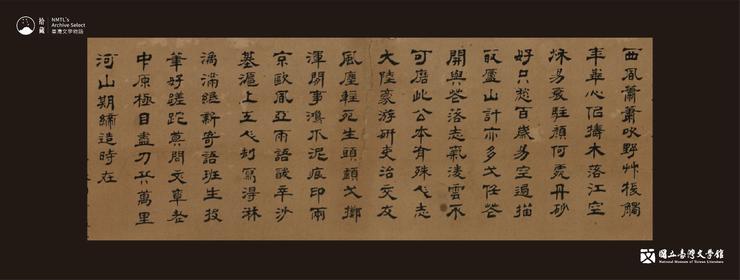 拾藏
NMTL's
Archive Select
臺灣文學物語
西風蕭蕭吹野艸振觸
年華心怕擣木落江空
秋易衰駐顏何處丹砂
好只愁百歲易空過
廬山計亦多任花
開與花落志氣凌雲不
可磨此公本有殊人志
大陸豪游研吏治交友
風塵輕死生頭顱戈擲
渾閒事鴻爪泥痕印兩
京歐風亞雨語酸辛沙
基滬上五人封寫得淋
漓滿紙新寄語班生投
筆好蹉跎莫問文章老
中原極目盡刀兵萬里
河山期締造時在
國立臺灣文學館
National Museum of Taiwan Literature